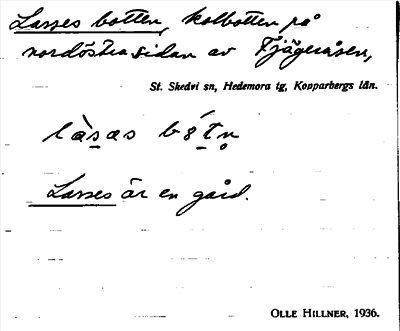 Lasses botten, kolbotten på
nordöstra sidan av Fjägeråsen,
St. Skedvi sn, Hedemora tg, Kopparbergs län.
là̱sas bót̠n̥
Lasses är en gård.
OLLE HILLNER, 1936.